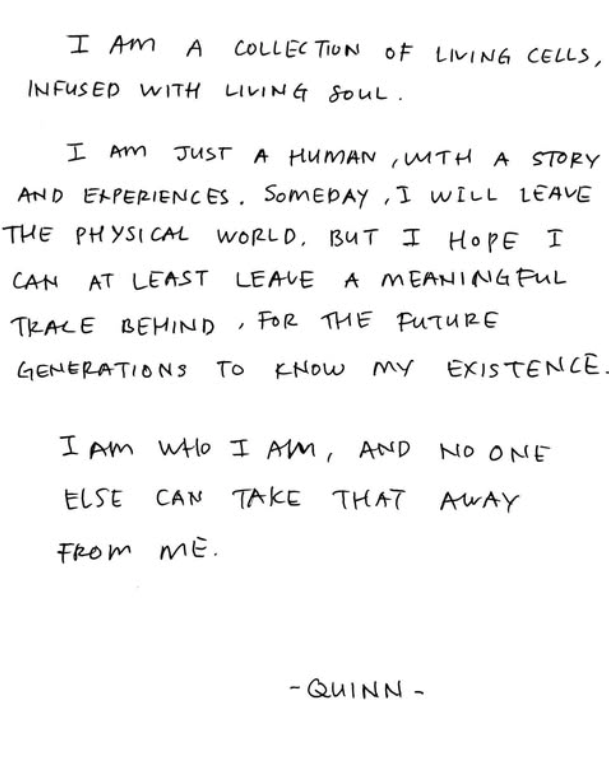 I AM A COLLECTION OF LIVING CELLS,
INFUSED WITH LIVING SOUL.
I AM JUST A HUMAN, WITH A STORY
AND EXPERIENCES. SOMEDAY, I WILL LEAVE
THE PHYSICAL WORLD. BUT I HOPE I
CAN AT LEAST LEAVE A MEANINGFUL
TRACE BEHIND, FOR THE FUTURE
GENERATIONS TO KNOW MY EXISTENCE.
I AM WHO I AM, AND NO ONE
ELSE CAN TAKE THAT AWAY
FROM ME.
-QUINN-